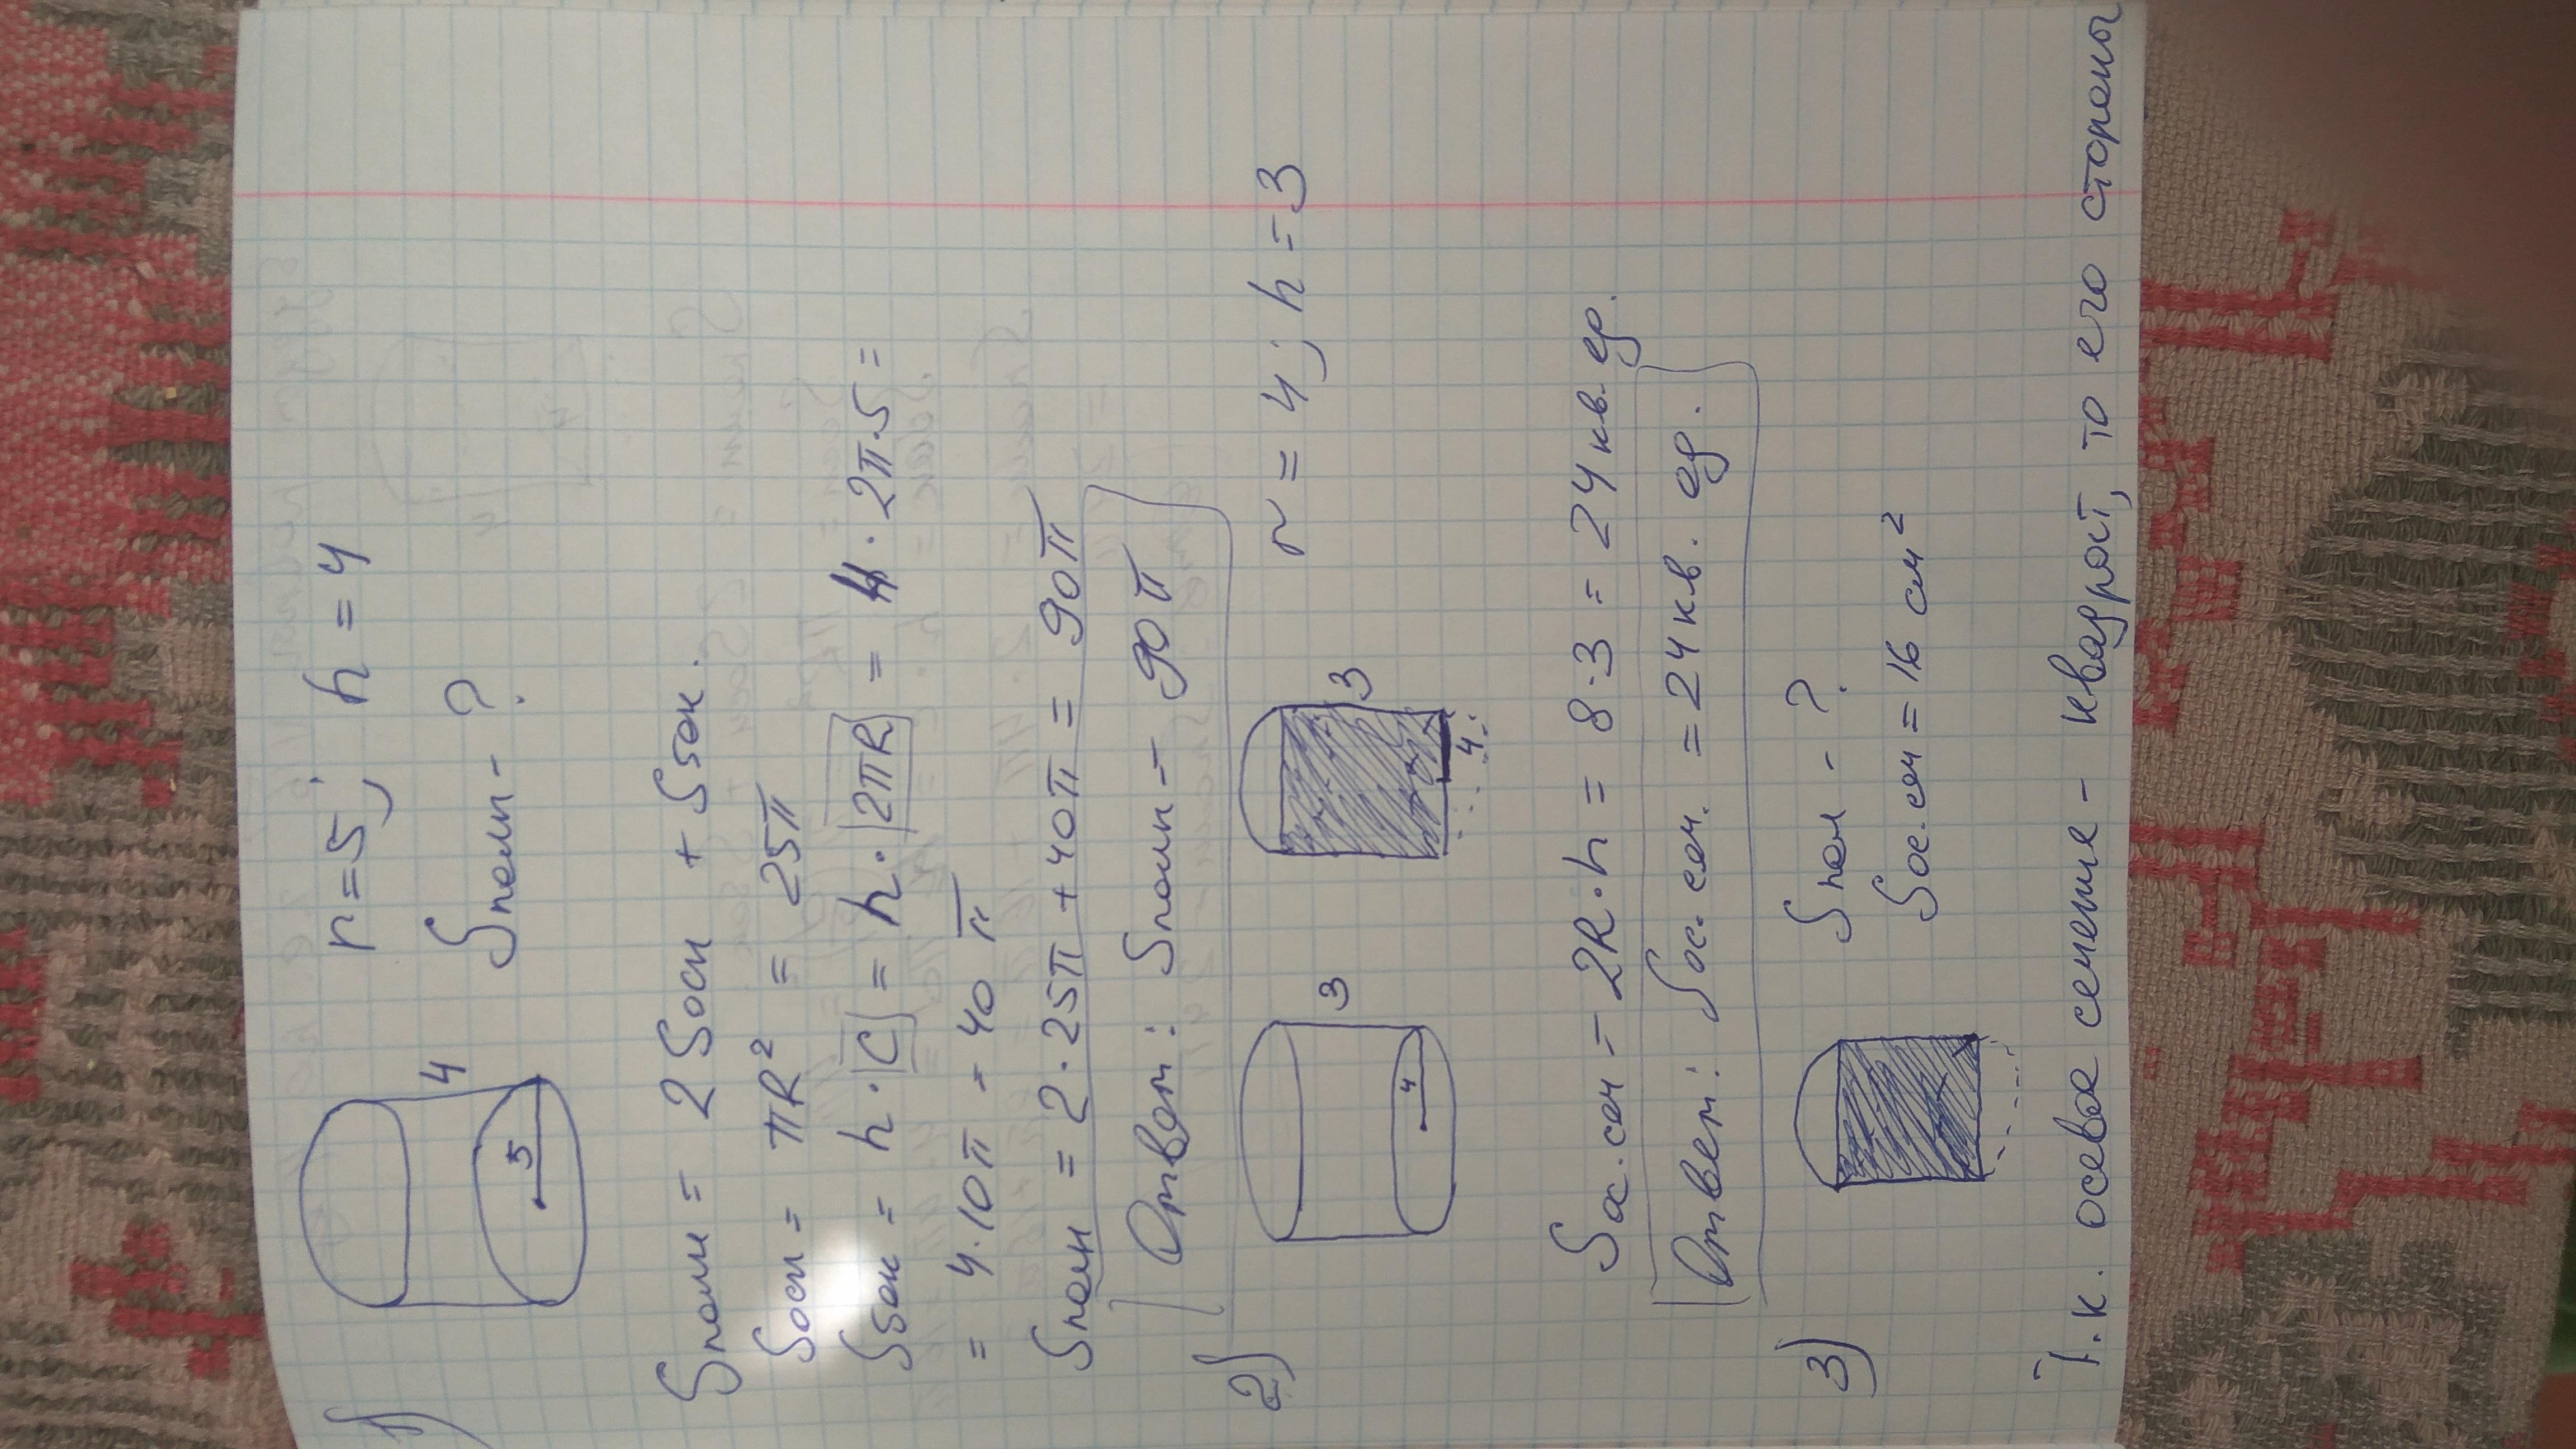 1)
4
5
r=5; h=4
Sполн - ?
Sполн = 2 Sосн + Sбок.
Sосн = πR² = 25π
Sбок = h · C = h · 2πR = 4 · 2π · 5 =
= 4 · 10π = 40 π
Sполн = 2 · 25π + 40π = 90π
Ответ: Sполн = 90π
2)
3
4
3
4
r = 4; h = 3
Sос.сеч = 2R · h = 8 · 3 = 24 кв. ед.
Ответ: Sос. сеч. = 24 кв. ед.
3)
Sпол - ?
Sос.сеч = 16 см²
Т.к. осевое сечение - квадрат, то его стороны